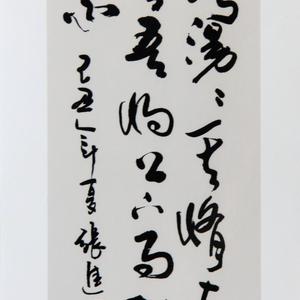 漫〻其脩
吾將上下而
索 己丑年夏張